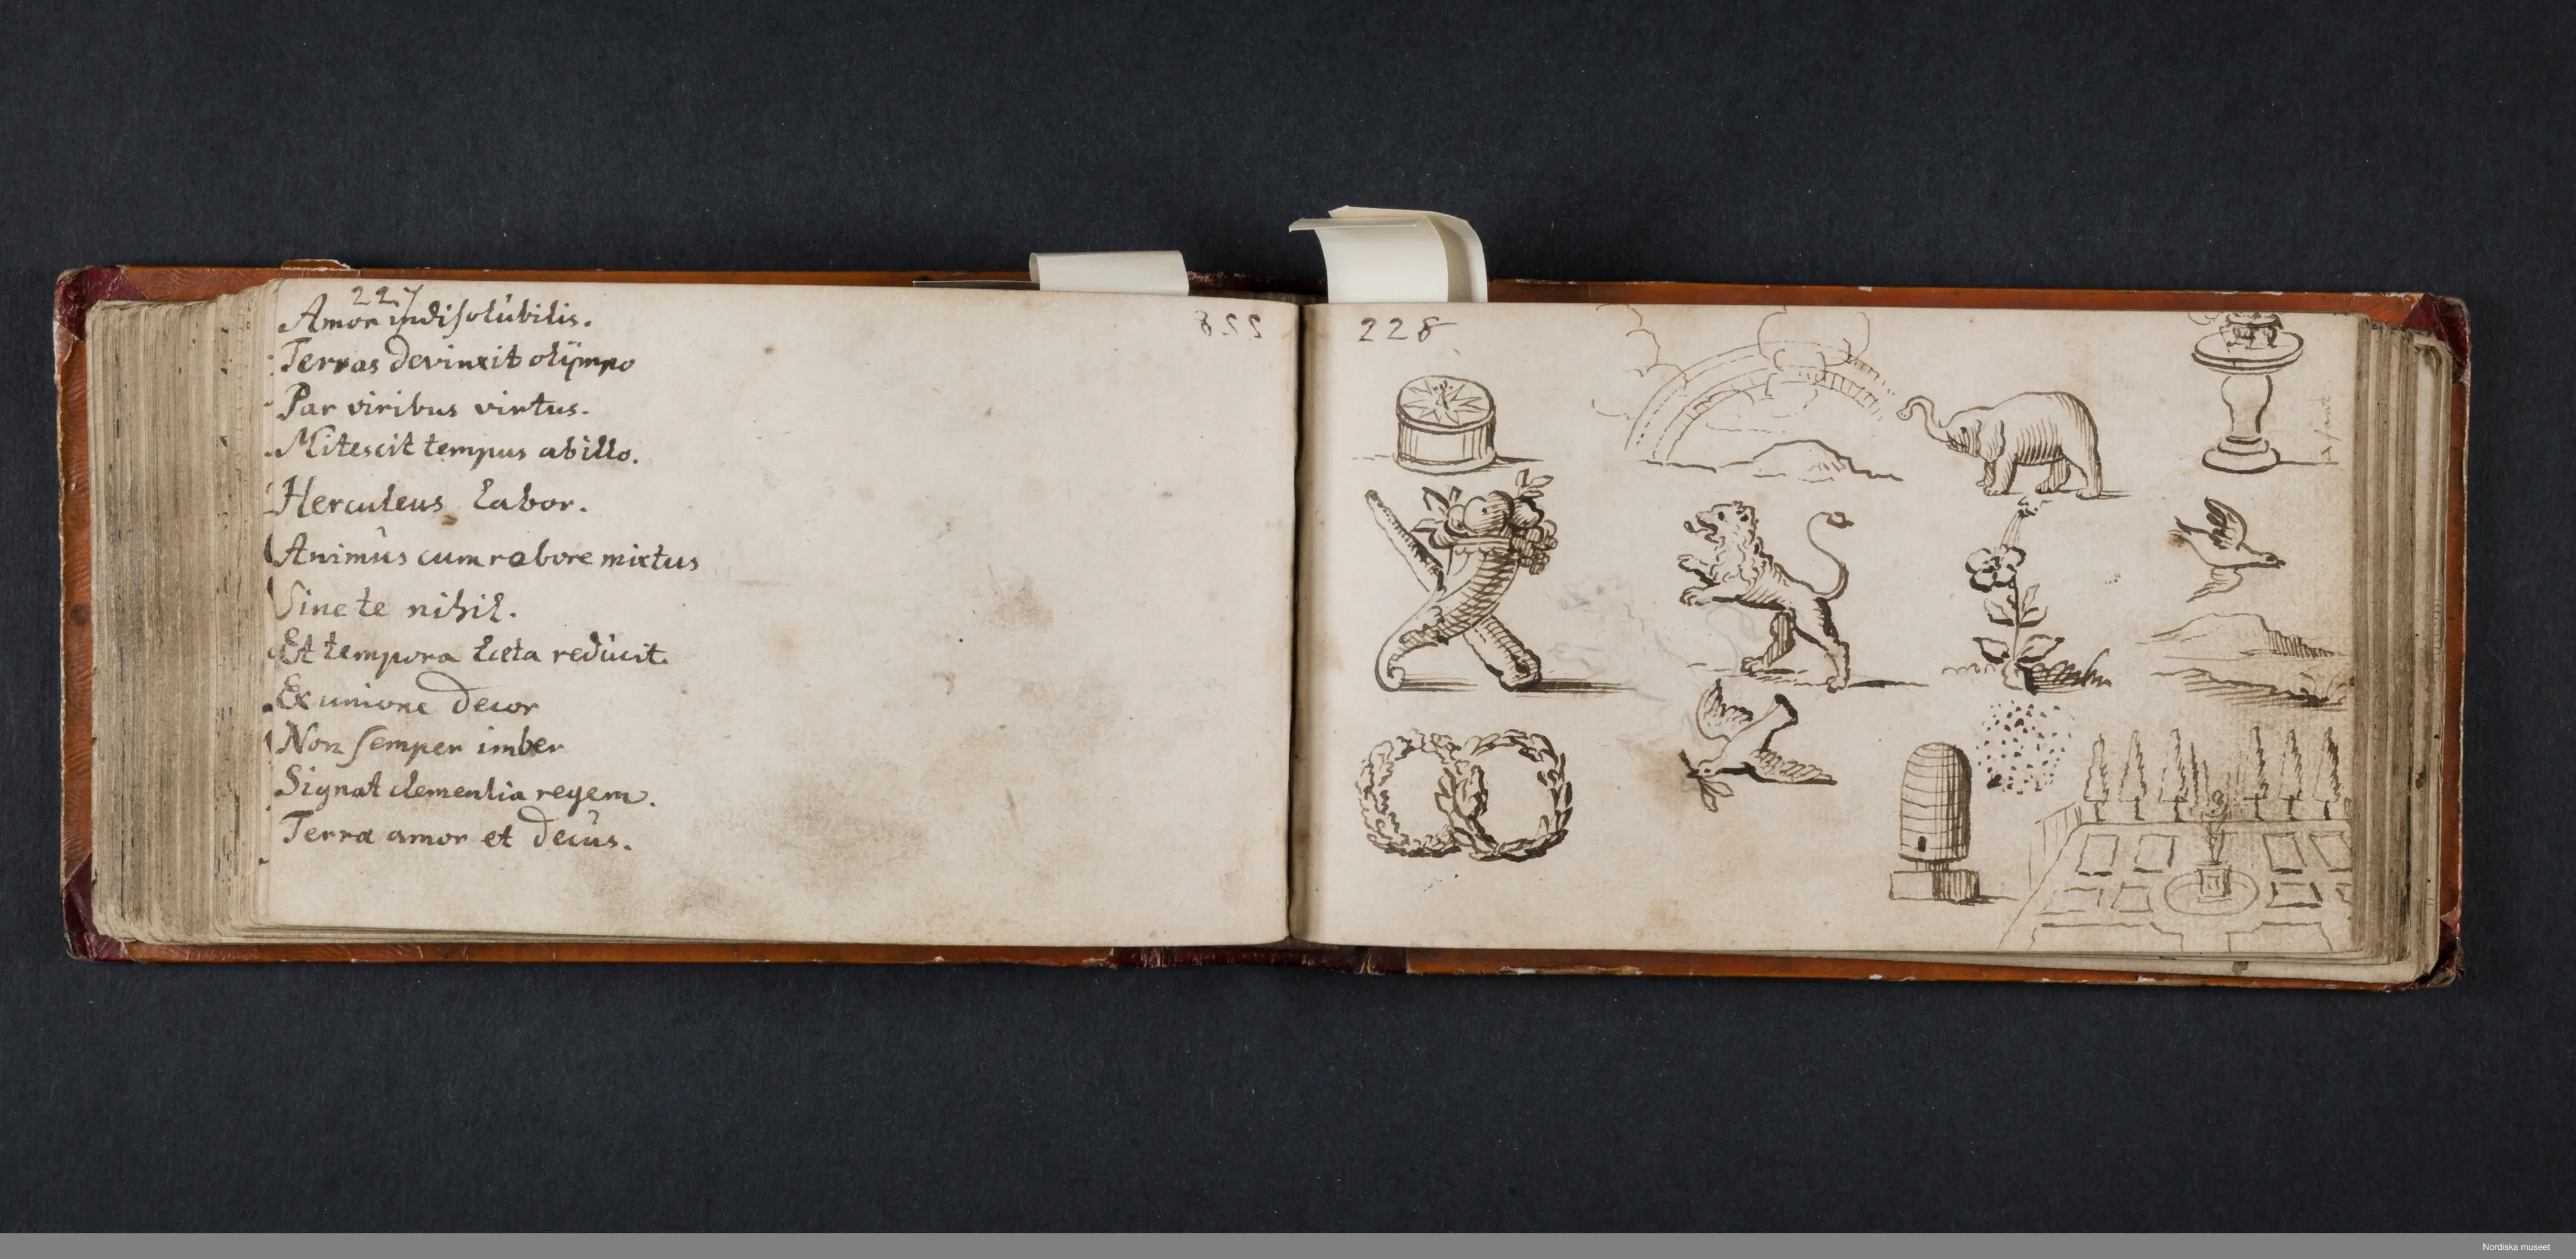 227
Amor indisolubilis.
Terras devinxit olÿmpo
Par viribus virtus.
Mitescit tempus ab illo.
Herculeus Labor.
Animus cum robore mixtus
Sine te nihil.
Et tempora læta reducit.
Ex unione decor
Non semper imber
Signat clementia regem.
Terra amor et decus.
228
Nordiska museet